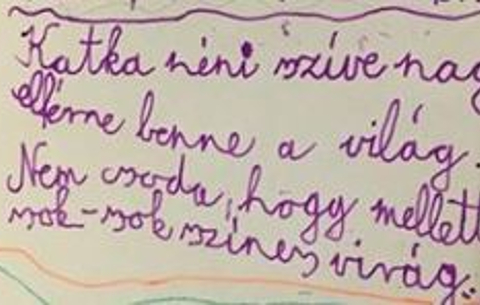 Katka néni szíve nag
elférne benne a világ.
Nem csoda, hogy mellett
sok-sok színes virág.